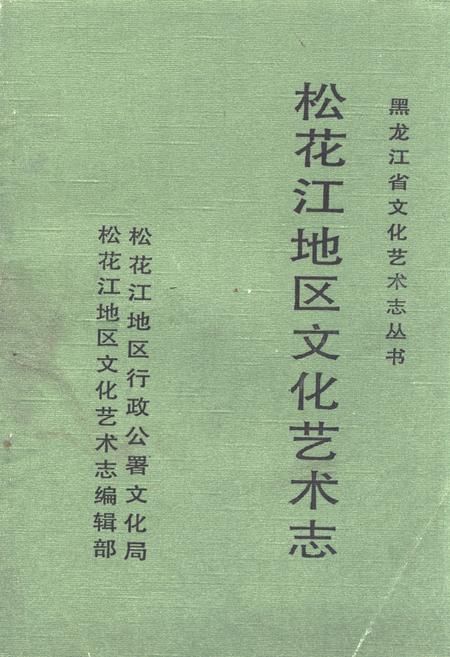 黑龙江省文化艺术志丛书
松花江地区文化艺术志
松花江地区行政公署文化局
松花江地区文化艺术志编辑部